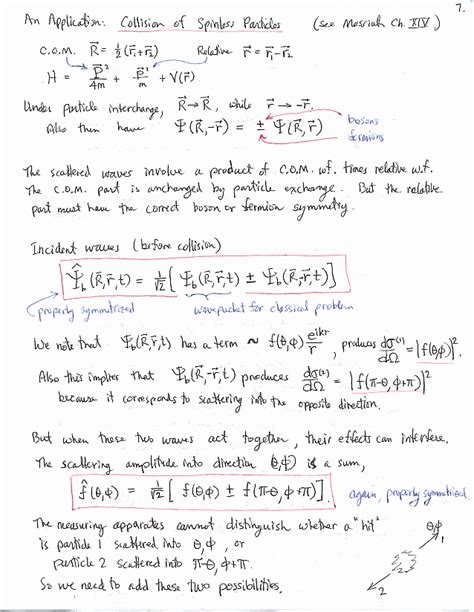 7.
An Application: Collision of Spinless Particles (see Messiah Ch. XIV)
C.O.M. R⃗ = ½(r⃗₁+r⃗₂) Relative r⃗ = r⃗₁-r⃗₂
H = P⃗²/4m + p⃗²/m + V(r⃗)
Under particle interchange, R⃗→R⃗, while r⃗→-r⃗.
Also then have Ψ(R⃗,-r⃗) = ± Ψ(R⃗,r⃗) bosons
fermions
The scattered waves involve a product of C.O.M. wf. times relative w.f.
The C.O.M. part is unchanged by particle exchange. But the relative
part must have the correct boson or fermion symmetry.
Incident waves (before collision)
Ψ̂_b(R⃗,r⃗,t) = 1/√2 [Ψ_b(R⃗,r⃗,t) ± Ψ_b(R⃗,-r⃗,t)]
properly symmetrized wavepacket for classical problem
We note that Ψ_b(R⃗,r⃗,t) has a term ~ f(θ,ϕ) e^{ikr}/r, produces dσ^{(1)}/dΩ = |f(θ,ϕ)|²
Also this implies that Ψ_b(R⃗,-r⃗,t) produces dσ^{(2)}/dΩ = |f(π-θ,ϕ+π)|²
because it corresponds to scattering into the opposite direction.
But when these two waves act together, their effects can interfere.
The scattering amplitude into direction (θ,ϕ) is a sum,
f̂(θ,ϕ) = 1/√2 [f(θ,ϕ) ± f(π-θ,ϕ+π)]. again, properly symmetrized
The measuring apparatus cannot distinguish whether a "hit"
is particle 1 scattered into θ,ϕ, or
particle 2 scattered into π-θ, ϕ+π.
So we need to add these two possibilities.
θ,ϕ
1
2